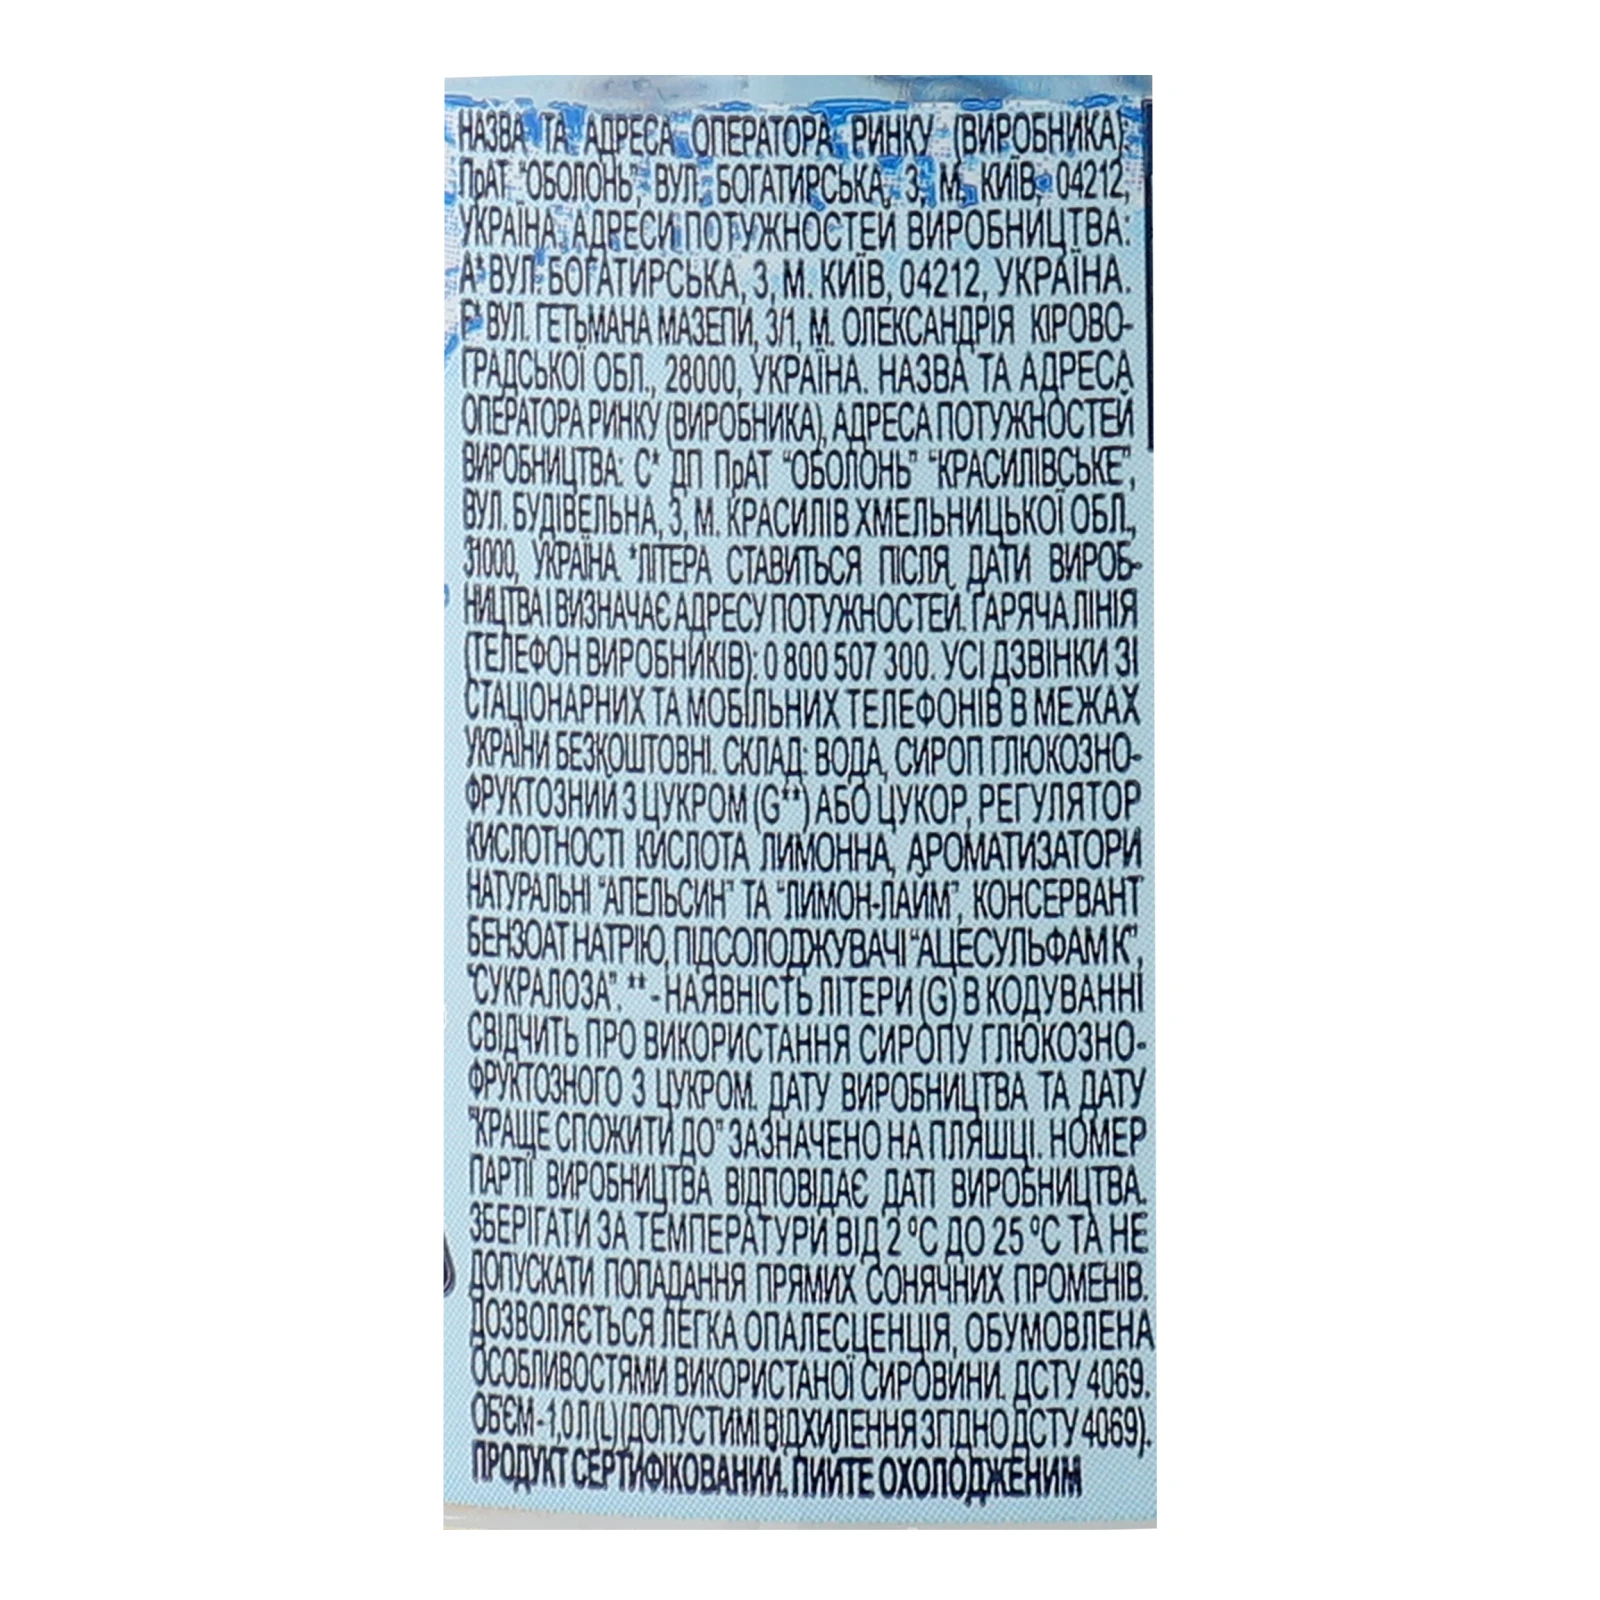 НАЗВА ТА АДРЕСА ОПЕРАТОРА РИНКУ (ВИРОБНИКА):
ПрАТ "ОБОЛОНЬ", ВУЛ. БОГАТИРСЬКА, 3, М. КИЇВ, 04212,
УКРАЇНА. АДРЕСИ ПОТУЖНОСТЕЙ ВИРОБНИЦТВА:
А* ВУЛ. БОГАТИРСЬКА, 3, М. КИЇВ, 04212, УКРАЇНА.
F* ВУЛ. ГЕТЬМАНА МАЗЕПИ, 3/1, М. ОЛЕКСАНДРІЯ КІРОВО-
ГРАДСЬКОЇ ОБЛ., 28000, УКРАЇНА. НАЗВА ТА АДРЕСА
ОПЕРАТОРА РИНКУ (ВИРОБНИКА), АДРЕСА ПОТУЖНОСТЕЙ
ВИРОБНИЦТВА: С* ДП ПрАТ "ОБОЛОНЬ" "КРАСИЛІВСЬКЕ",
ВУЛ. БУДІВЕЛЬНА, 3, М. КРАСИЛІВ ХМЕЛЬНИЦЬКОЇ ОБЛ.,
31000, УКРАЇНА. *ЛІТЕРА СТАВИТЬСЯ ПІСЛЯ ДАТИ ВИРОБ-
НИЦТВА І ВИЗНАЧАЄ АДРЕСУ ПОТУЖНОСТЕЙ. ГАРЯЧА ЛІНІЯ
(ТЕЛЕФОН ВИРОБНИКІВ): 0 800 507 300. УСІ ДЗВІНКИ ЗІ
СТАЦІОНАРНИХ ТА МОБІЛЬНИХ ТЕЛЕФОНІВ В МЕЖАХ
УКРАЇНИ БЕЗКОШТОВНІ. СКЛАД: ВОДА, СИРОП ГЛЮКОЗНО-
ФРУКТОЗНИЙ З ЦУКРОМ (G**) АБО ЦУКОР, РЕГУЛЯТОР
КИСЛОТНОСТІ КИСЛОТА ЛИМОННА, АРОМАТИЗАТОРИ
НАТУРАЛЬНІ "АПЕЛЬСИН" ТА "ЛИМОН-ЛАЙМ", КОНСЕРВАНТ
БЕНЗОАТ НАТРІЮ, ПІДСОЛОДЖУВАЧІ "АЦЕСУЛЬФАМ К",
"СУКРАЛОЗА". ** - НАЯВНІСТЬ ЛІТЕРИ (G) В КОДУВАННІ
СВІДЧИТЬ ПРО ВИКОРИСТАННЯ СИРОПУ ГЛЮКОЗНО-
ФРУКТОЗНОГО З ЦУКРОМ. ДАТУ ВИРОБНИЦТВА ТА ДАТУ
"КРАЩЕ СПОЖИТИ ДО" ЗАЗНАЧЕНО НА ПЛЯШЦІ. НОМЕР
ПАРТІЇ ВИРОБНИЦТВА ВІДПОВІДАЄ ДАТІ ВИРОБНИЦТВА.
ЗБЕРІГАТИ ЗА ТЕМПЕРАТУРИ ВІД 2 °С ДО 25 °С ТА НЕ
ДОПУСКАТИ ПОПАДАННЯ ПРЯМИХ СОНЯЧНИХ ПРОМЕНІВ.
ДОЗВОЛЯЄТЬСЯ ЛЕГКА ОПАЛЕСЦЕНЦІЯ, ОБУМОВЛЕНА
ОСОБЛИВОСТЯМИ ВИКОРИСТАНОЇ СИРОВИНИ. ДСТУ 4069.
ОБ'ЄМ - 1,0 Л (L) (ДОПУСТИМІ ВІДХИЛЕННЯ ЗГІДНО ДСТУ 4069).
ПРОДУКТ СЕРТИФІКОВАНИЙ. ПИЙТЕ ОХОЛОДЖЕНИМ